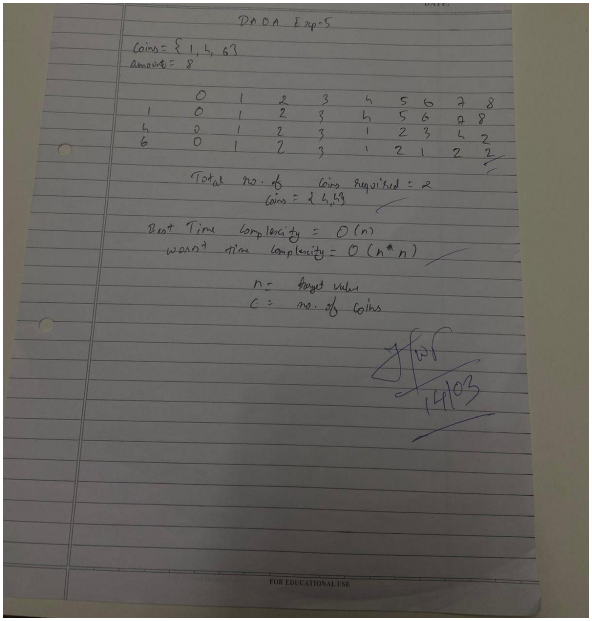 DATE:
DAOA Exp-5
Coins = { 1, 4, 6}
amount = 8
0 1 2 3 4 5 6 7 8
1 0 1 2 3 4 5 6 7 8
4 0 1 2 3 1 2 3 4 2
6 0 1 2 3 1 2 1 2 2
Total no. of Coins required = 2
Coins = { 4,4}
Best Time Complexcity = O (n)
worst time Complexcity = O (n * n)
n = target value
c = no. of Coins
14/03
FOR EDUCATIONAL USE